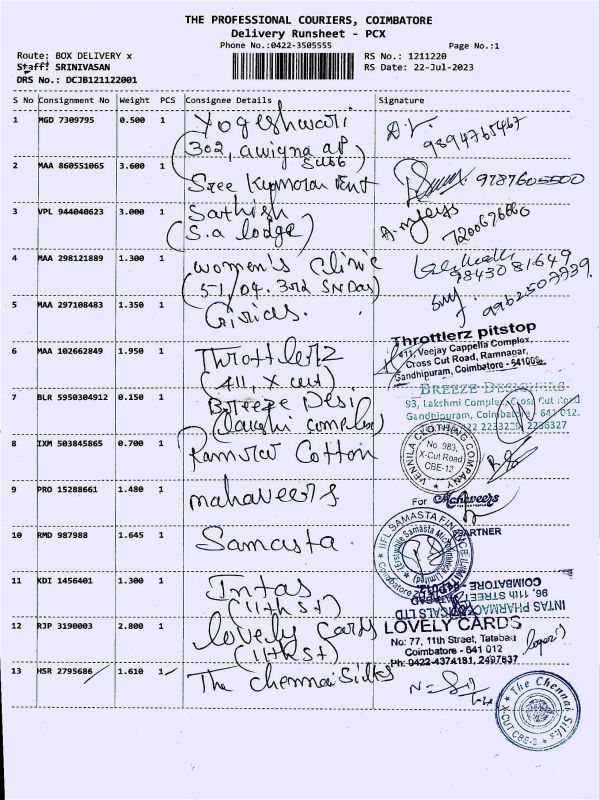 THE PROFESSIONAL COURIERS, COIMBATORE
Delivery Runsheet - PCX
Phone No.:0422-3505555
Page No.:1
Route: BOX DELIVERY x
RS No.: 1211220
Staff: SRINIVASAN
RS Date: 22-Jul-2023
DRS No.: DCJB121122001
S No Consignment No Weight PCS Consignee Details Signature
1 MGD 7309795 0.500 1 Yogeshwari
(302, awigna ap
9894765467
2 MAA 860551065 3.600 1 Sree Kumaran
9787605500
3 VPL 944040623 3.000 1 Sathish
(S.a lodge)
7200676660
4 MAA 298121889 1.300 1 women's Clinic
9843081649
5 MAA 297108483 1.350 1 Girias.
9962507739
6 MAA 102662849 1.950 1 Throttlerz
(411, X cut)
Throttlerz pitstop
411, Veejay Cappella Complex,
Cross Cut Road, Ramnagar,
Gandhipuram, Coimbatore - 641009.
7 BLR 5950304912 0.150 1 Breeze Desi
BREEZE DESIGNERS
93, Lakshmi Complex, Cross Cut Road
Gandhipuram, Coimbatore 641 012.
8 IXM 503845865 0.700 1 Ramraj Cotton
VENNILA CLOTHING COMPANY
No. 983,
X-Cut Road
CBE-12
9 PRO 15288661 1.480 1 mahaveers
For Mahaveers
PARTNER
10 RMD 987988 1.645 1 Samasta.
IIFL SAMASTA FINANCE LIMITED
11 KDI 1456401 1.300 1 Intas
(11th st)
INTAS PHARMACEUTICALS LTD
96, 11th STREET,
COIMBATORE
12 RJP 3190003 2.800 1 lovely Cards
(11th st)
LOVELY CARDS
No: 77, 11th Street, Tatabad
Coimbatore - 641 012
Ph: 0422-4374181, 2497837
13 HSR 2795686 1.610 1 The Chennai Silks
The Chennai Silks
X-CUT CBE-